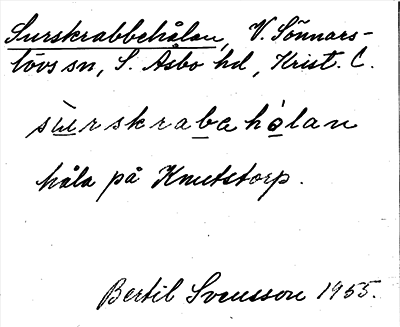 Surskrabbehålan, V. Sönnars-
lövs sn, S. Åsbo hd, Krist. C.
sùrskrabahòlan
håla på Knutstorp.
Bertil Svensson 1955.